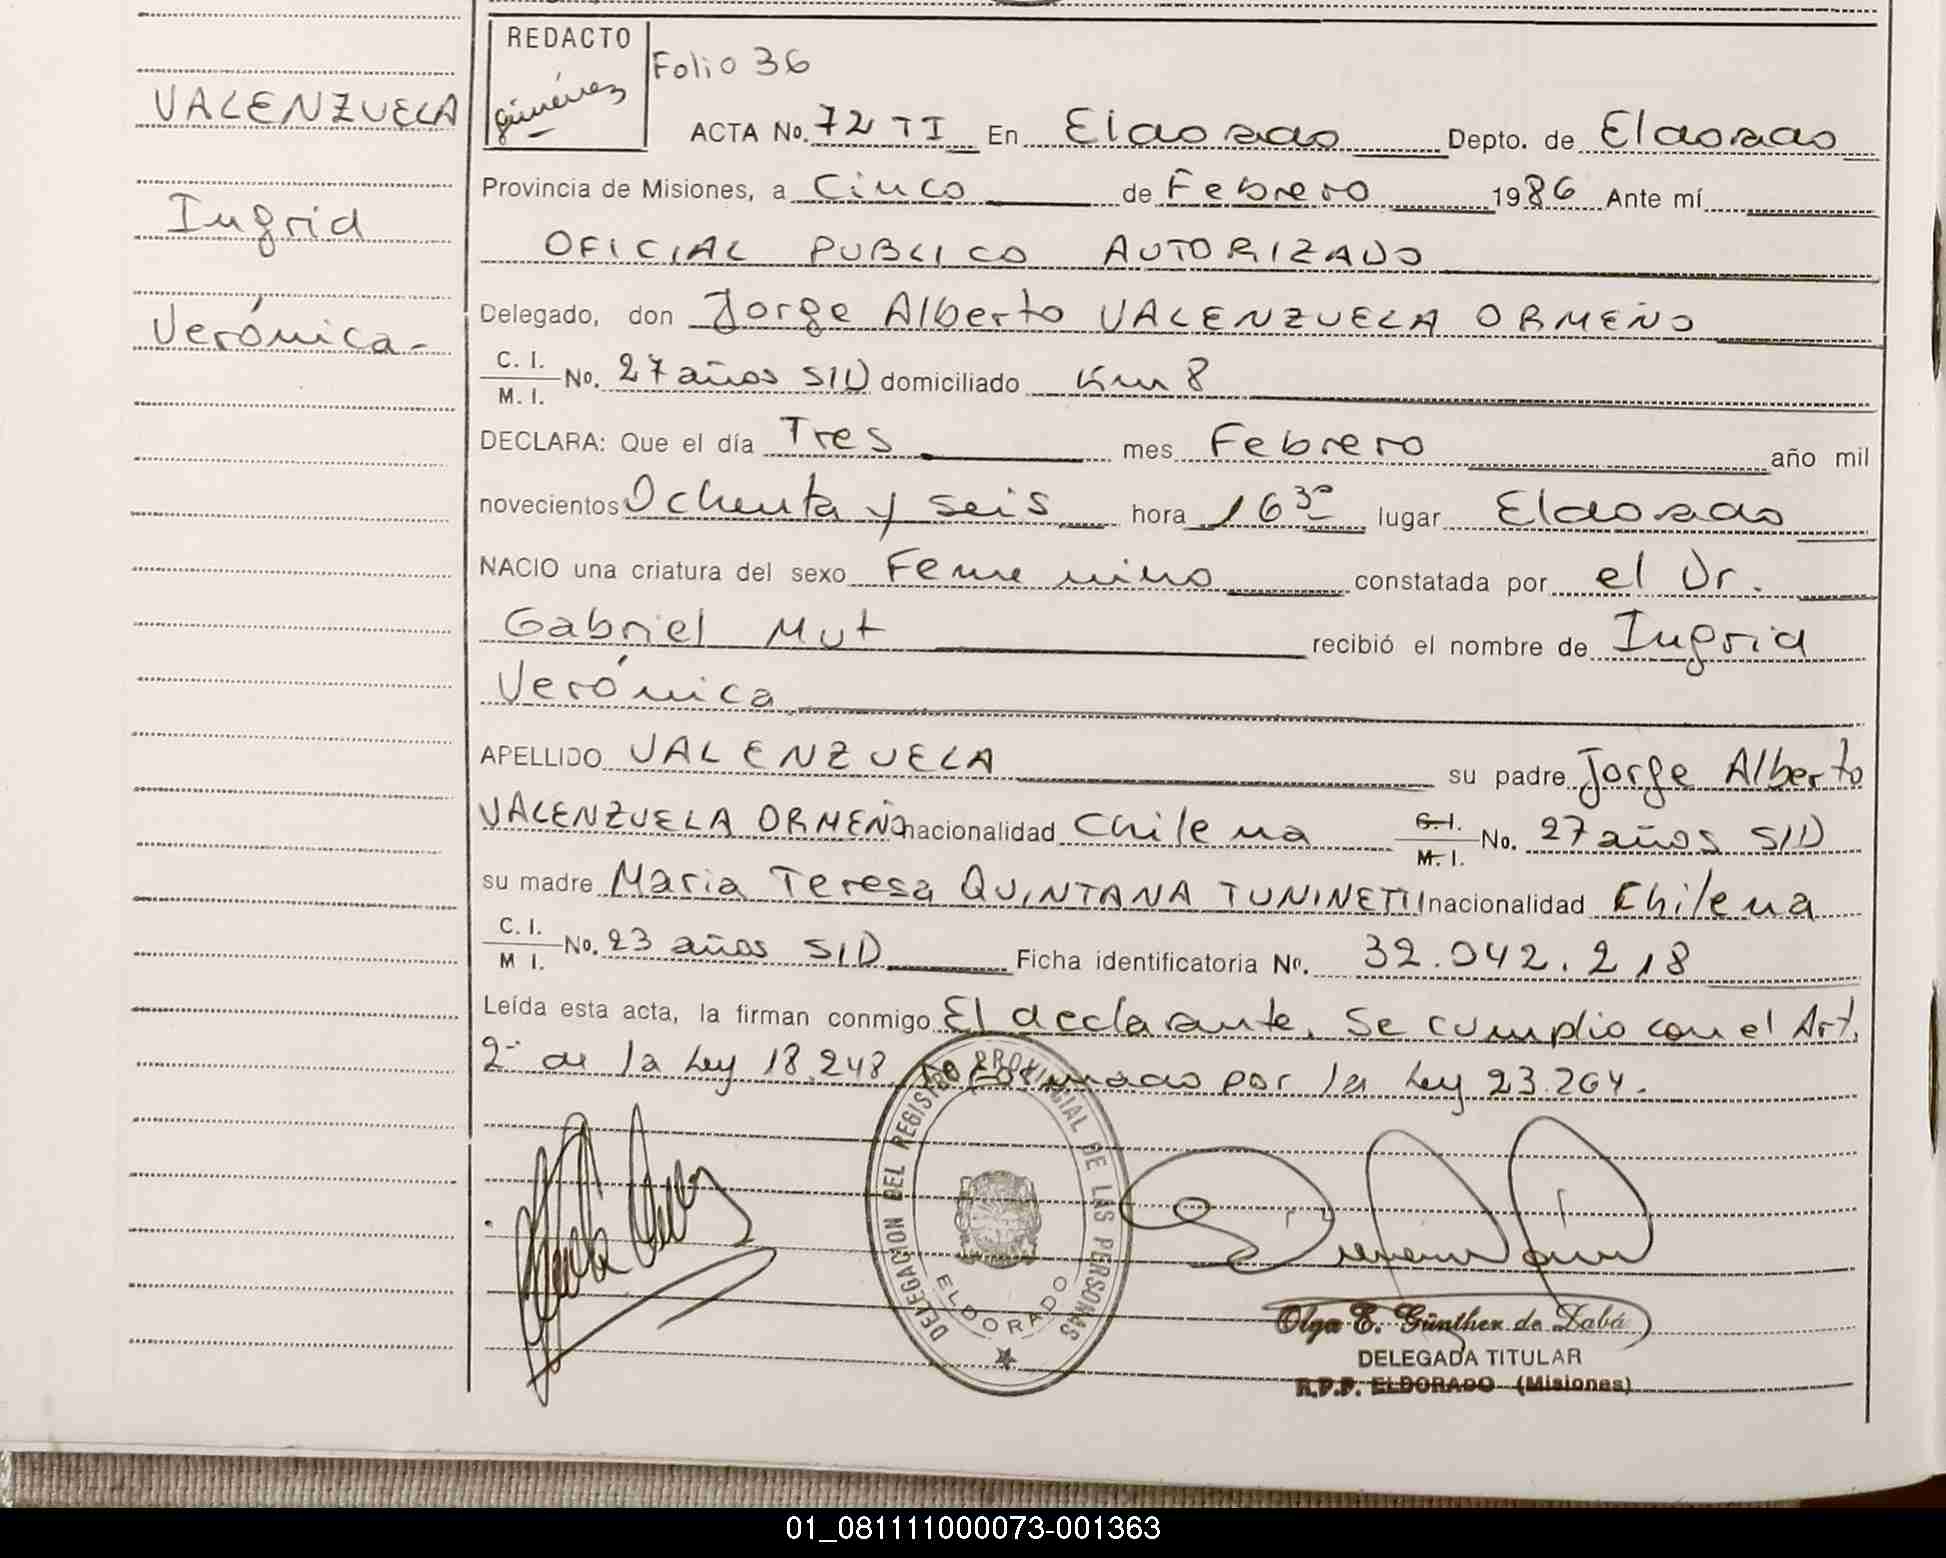 VALENZUELA
Ingrid
Verónica.-
REDACTO
Giménez
Folio 36
ACTA No. 72 TI En Eldorado Depto. de Eldorado
Provincia de Misiones, a Cinco de Febrero 1986 Ante mí
OFICIAL PUBLICO AUTORIZADO
Delegado, don Jorge Alberto VALENZUELA ORMEÑO
C. I.
M. I. No. 27 años S/D domiciliado Km 8
DECLARA: Que el día Tres mes Febrero año mil
novecientos Ochenta y seis hora 16 30 lugar Eldorado
NACIO una criatura del sexo Femenino constatada por el Dr.
Gabriel Mut recibió el nombre de Ingrid
Verónica
APELLIDO VALENZUELA su padre Jorge Alberto
VALENZUELA ORMEÑO nacionalidad Chilena C. I. M. I. No. 27 años S/D
su madre Maria Teresa QUINTANA TUNINETTI nacionalidad Chilena
C. I.
M I. No. 23 años S/D Ficha identificatoria No. 32.042.218
Leída esta acta, la firman conmigo El declarante. Se cumplio con el Art.
2- de la Ley 18.248 reformado por la Ley 23.264.
DELEGACION DEL REGISTRO PROVINCIAL DE LAS PERSONAS
ELDORADO
Olga E. Günther de Dabá
DELEGADA TITULAR
R.P.P. ELDORADO (Misiones)
01_081111000073-001363